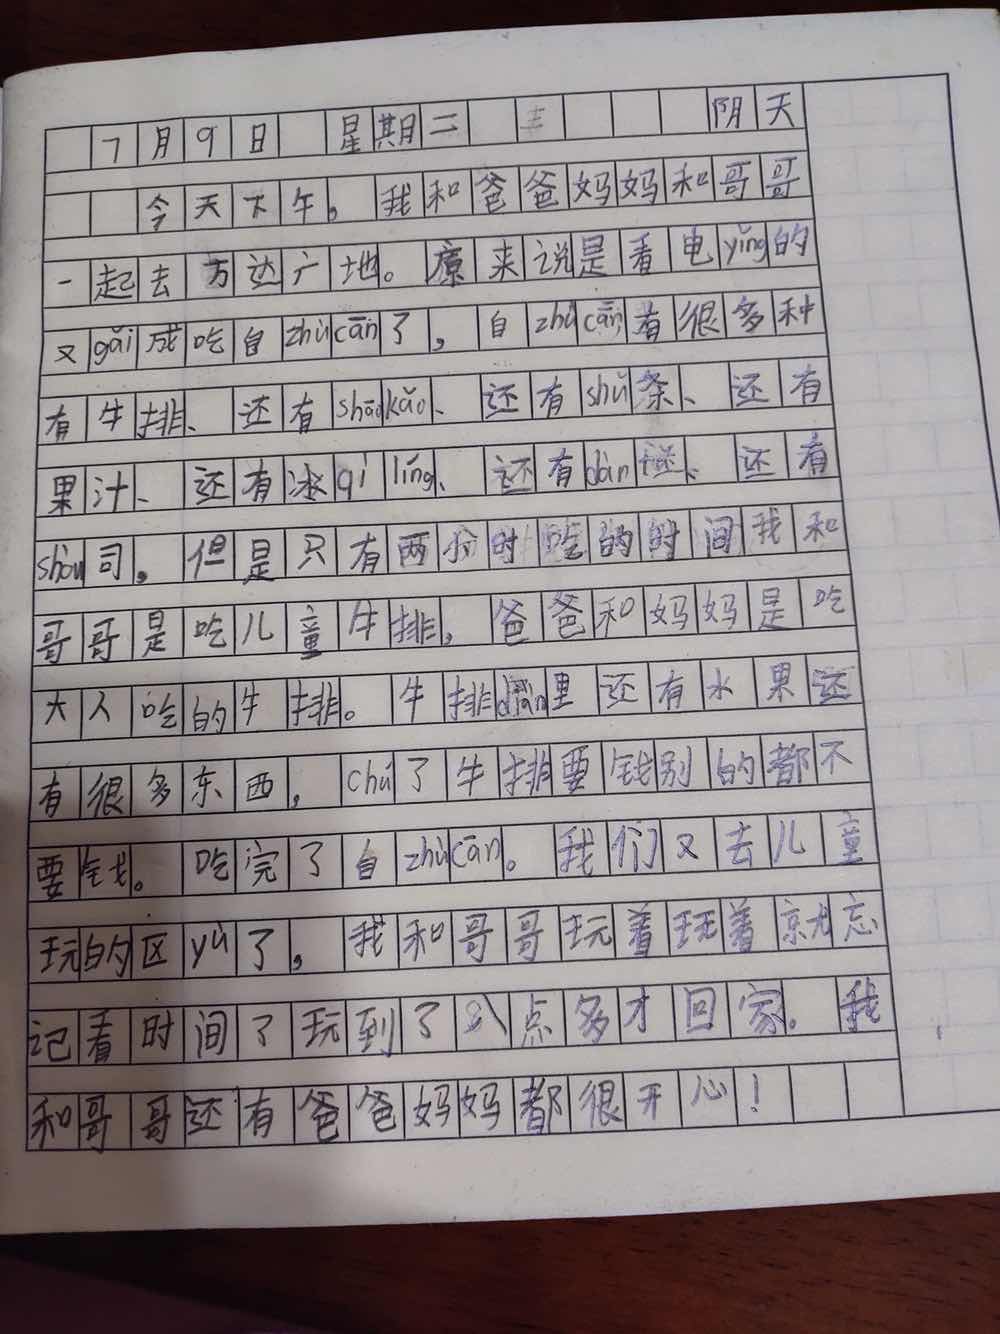 7月9日 星期二 阴天
今天下午，我和爸爸妈妈和哥哥
一起去万达广地。原来说是看电yǐng的
又gǎi成吃自zhùcān了，自zhùcān有很多种
有牛排、还有shāokǎo、还有shǔ条、还有
果汁、还有冰qí líng、还有dàn挞、还有
shòu司。但是只有两个时吃的时间我和
哥哥是吃儿童牛排，爸爸和妈妈是吃
大人吃的牛排。牛排diàn里还有水果还
有很多东西，chú了牛排要钱别的都不
要钱。吃完了自zhùcān。我们又去儿童
玩的区yù了，我和哥哥玩着玩着就忘
记看时间了玩到了八点多才回家。我
和哥哥还有爸爸妈妈都很开心！